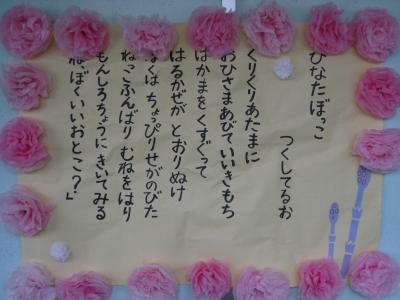 ひなたぼっこ
つくしてるお
くりくりあたまに
おひさまあびていいきもち
はかまをくすぐって
はるかぜが とおりぬけ
ぼくは ちょっぴりせがのびた
ねこふんばり むねをはり
もんしろちょうに きいてみる
「ね、ぼくいいおとこ?」